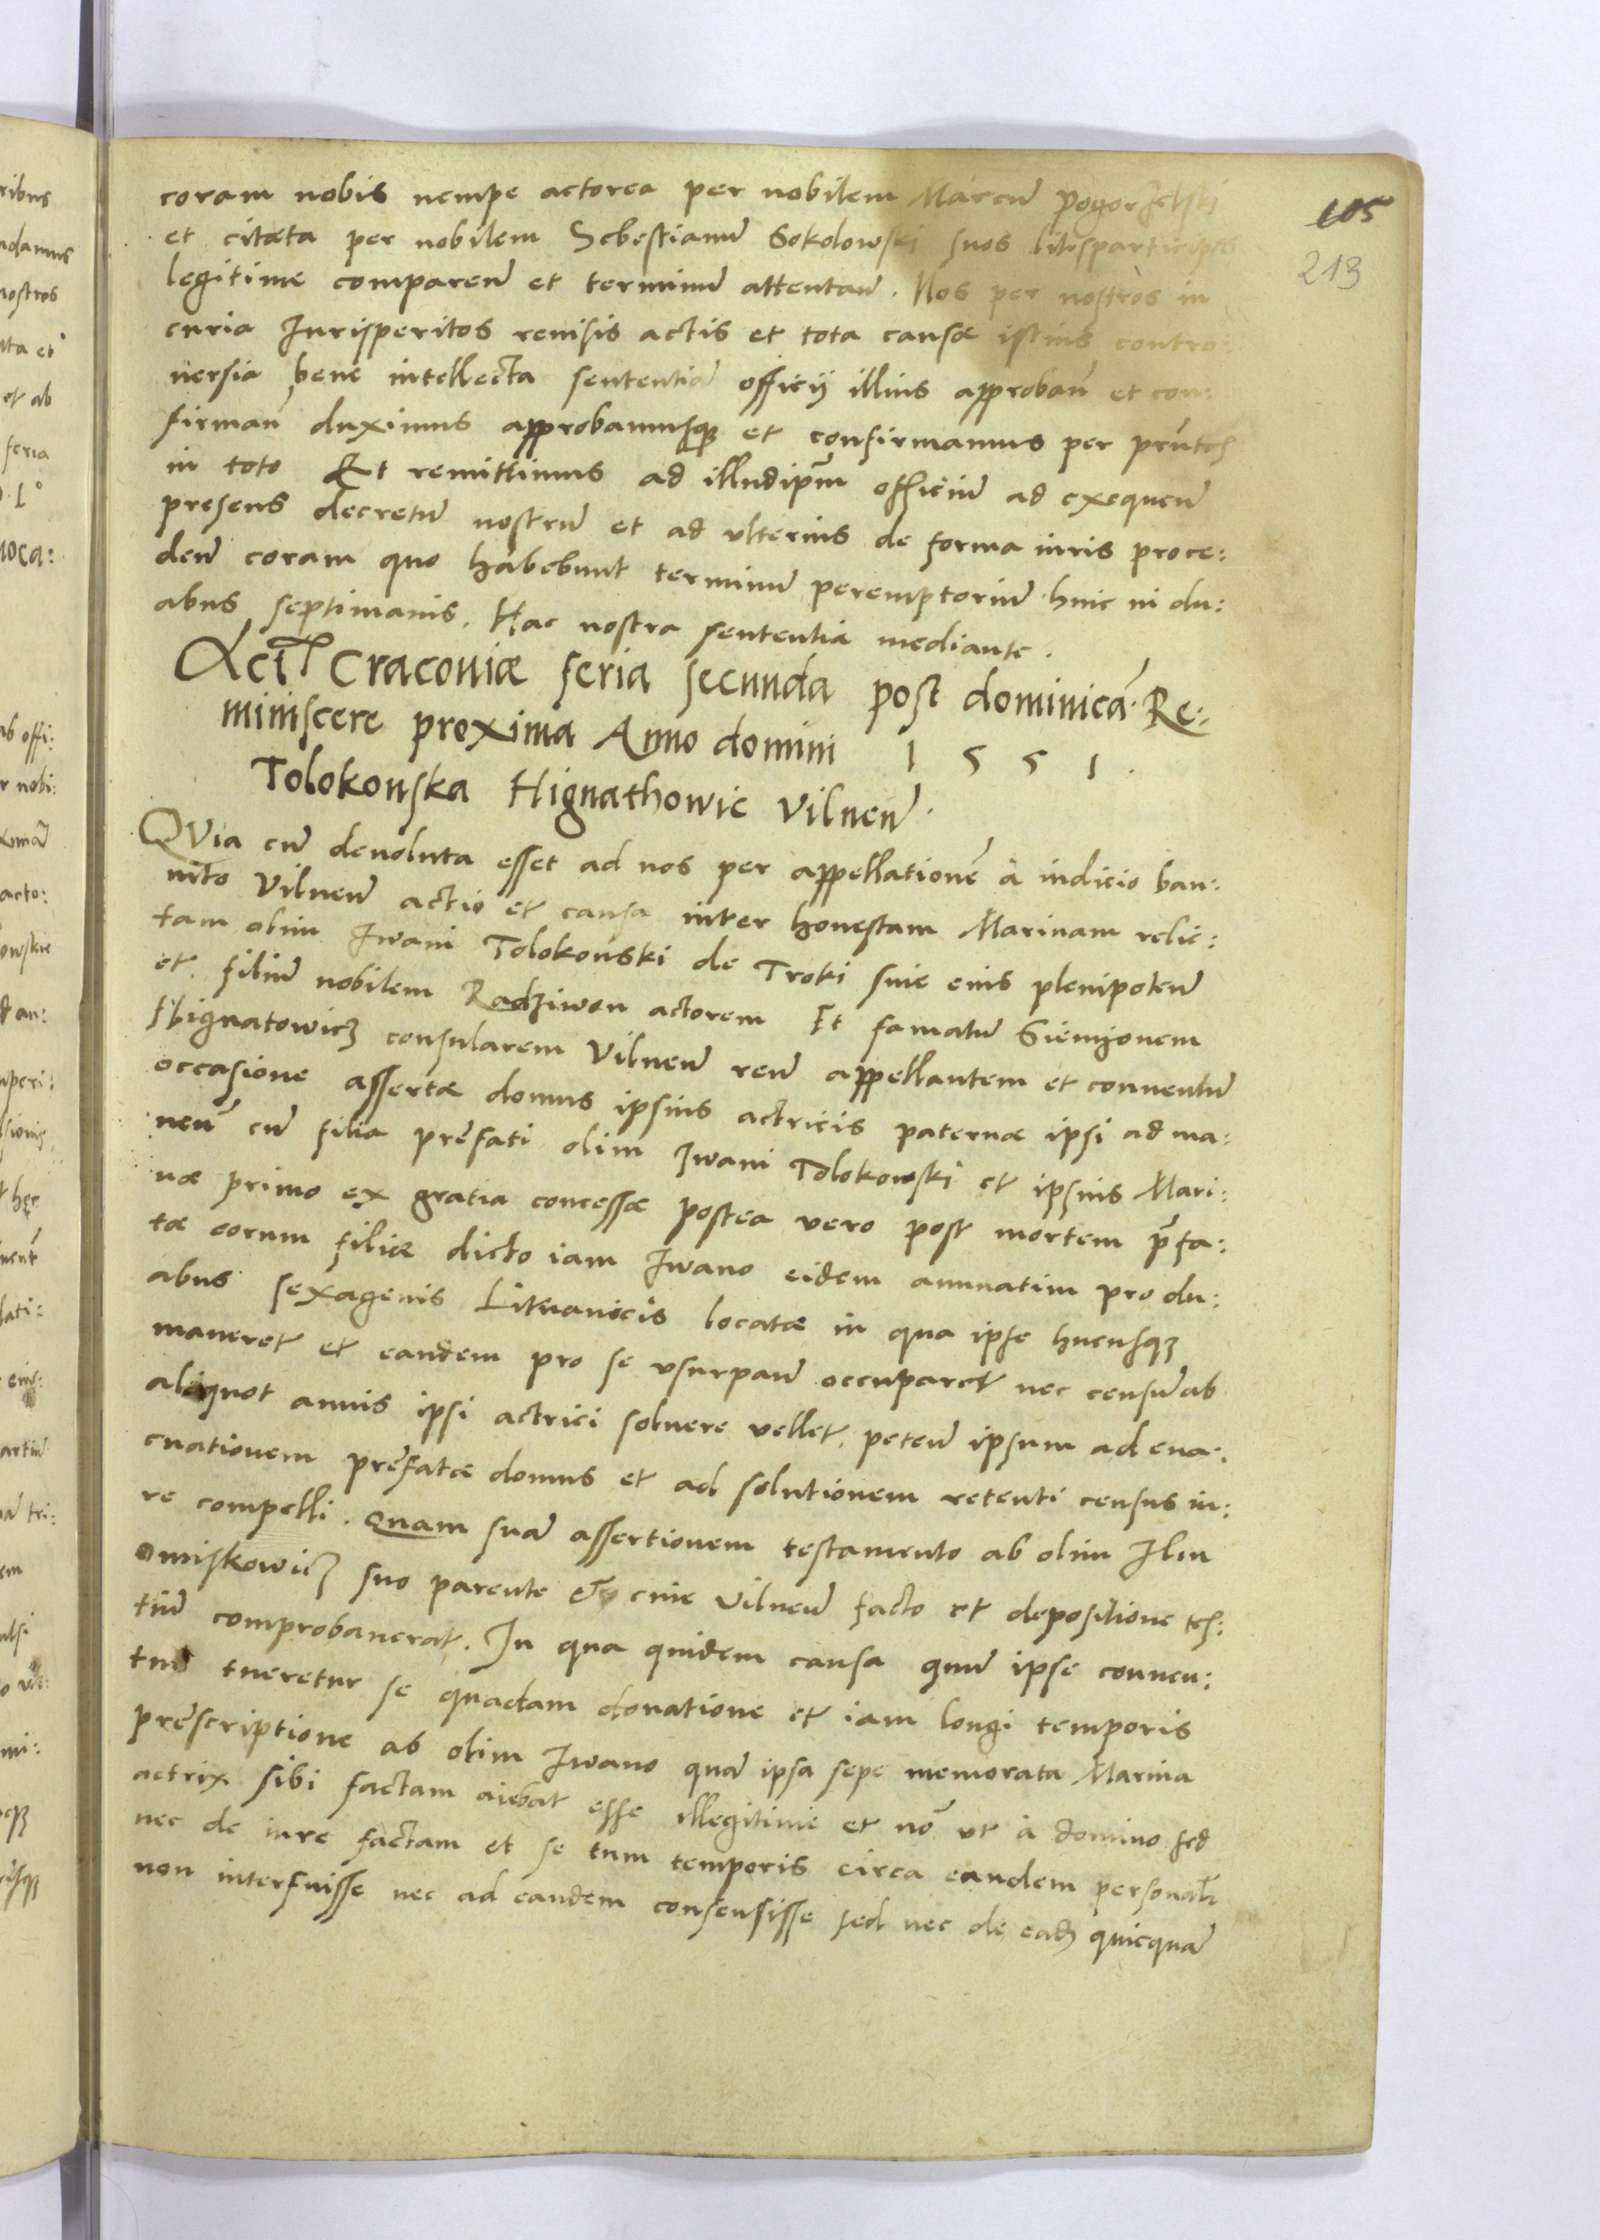 105
213
coram nobis nempe actorea per nobilem Marcū Pogorzelski
et citata per nobilem Sebestianū Sokolowski suos litisparticipes
legitime comparen̄ et terminū attentan̄. Nos per nostros in
curia Iurisperitos reuisis actis et tota causæ istius contro:
uersia bene intellecta sententiā officij illius approban̄ et con:
firman̄ duximus approbamusq̃ et confirmamus per prn̄tes
in toto Et remittimus ad illudipm̄ officiū ad exequen̄
presens decretū nostrū et ad vlterius de forma iuris proce:
den̄ coram quo habebunt terminū peremptoriū hinc in du:
abus septimanis. Hac nostra sententia mediante.
Act̄ Craconiæ feria secunda post dominicā Re:
miniscere proxima Anno domini 1551.
Tolokonska Hignathowic Vilnen̄
QVia cū deuoluta esset ad nos per appellationē à iudicio ban:
nito Vilnen̄ actio et causa inter honestam Marinam relic:
tam olim Iwani Tolokonski de Troki siue eius plenipoten̄
et filiū nobilem Radziwon actorem Et famatū Siemionem
Hignatowicz consularem Vilnen̄ reū appellantem et conuentū
occasione assertæ domus ipsius actricis paternæ ipsi ad ma:
nen̄ cū filia prefati olim Iwani Tolokowski et ipsius Mari:
næ primo ex gratia concessæ postea vero post mortem p̄fa:
tæ eorum filiæ dicto iam Iwano eidem annuatim pro du:
abus sexagenis Lituanicis locatæ in qua ipse hucusq̃
maneret et eandem pro se vsurpan̄ occuparet nec censū ab
aliquot annis ipsi actrici soluere vellet, peten̄ ipsum ad eua:
cuationem prefatæ domus et ad solutionem retenti census iu:
re compelli. Quam suā assertionem testamento ab olim Ilin
Omiskowicz suo parente ciue Vilnen̄ facto et depositione tes:
tiū comprobauerat. In qua quidem causa quū ipse conuen:
tus tueretur se quadam donatione et iam longi temporis
prescriptione ab olim Iwano quā ipsa sepe memorata Marina
actrix sibi factam aiebat esse illegitimè et nō vt à domino sed
nec de iure factam et se tum temporis circa eandem personalr̄
non interfuisse nec ad eandem consensisse sed nec de eadē quicquā